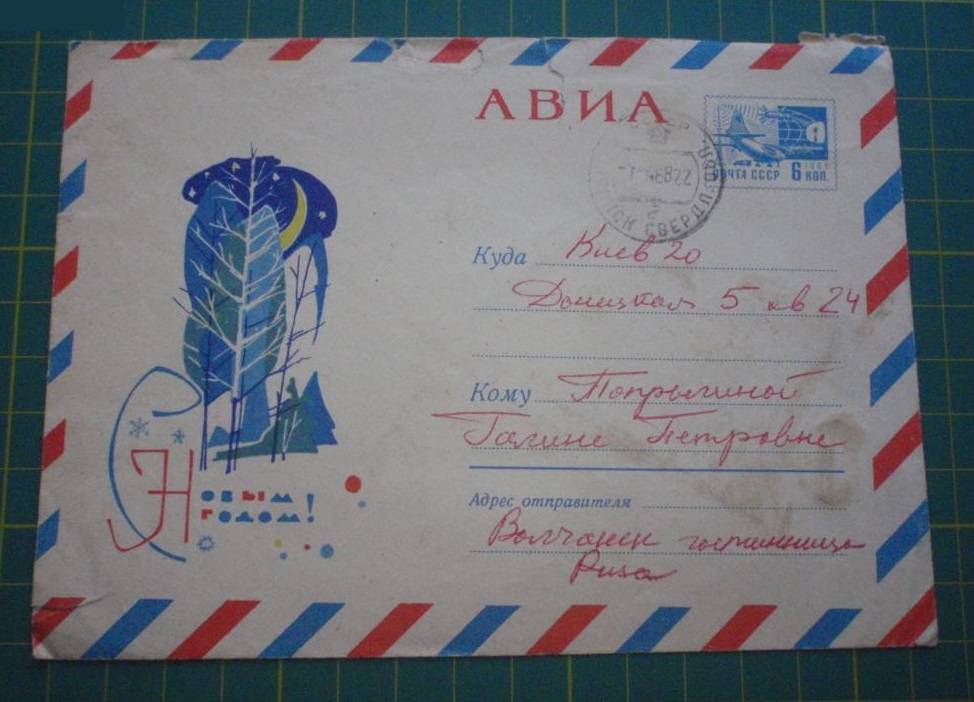 АВИА
ПОЧТА СССР 6 КОП.
СВЕРДЛ. ОБЛ.
Куда Киев 20
Донецкая 5 кв 24
Кому Попрыгиной
Галине Петровне
Адрес отправителя
Волчанск гостинница
С Новым
годом!